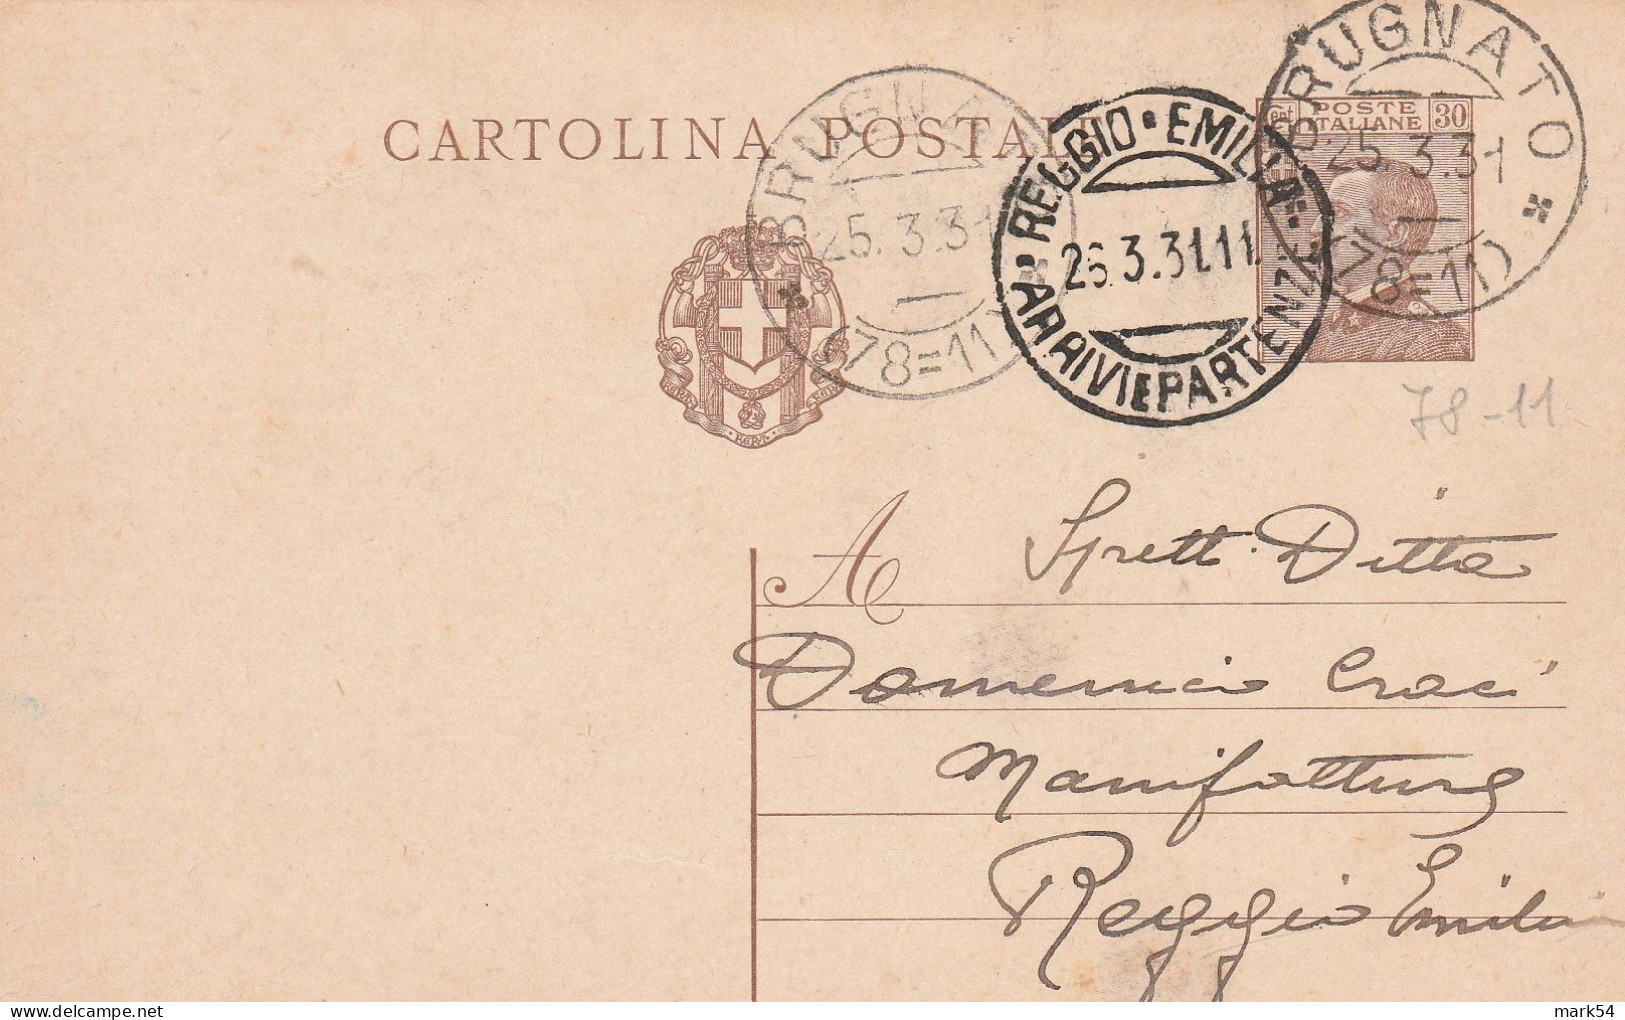 CARTOLINA POSTALE
BRUGNATO
25.3.31
(78=11)
REGGIO·EMILIA
26.3.31.11
ARRIVI E PARTENZE
BRUGNATO
25.3.31
(78=11)
cent POSTE ITALIANE 30
FERT FERT FERT
78-11
A Spett. Ditta
Domenico Croci
Manifatture
Reggio Emilia
mark54